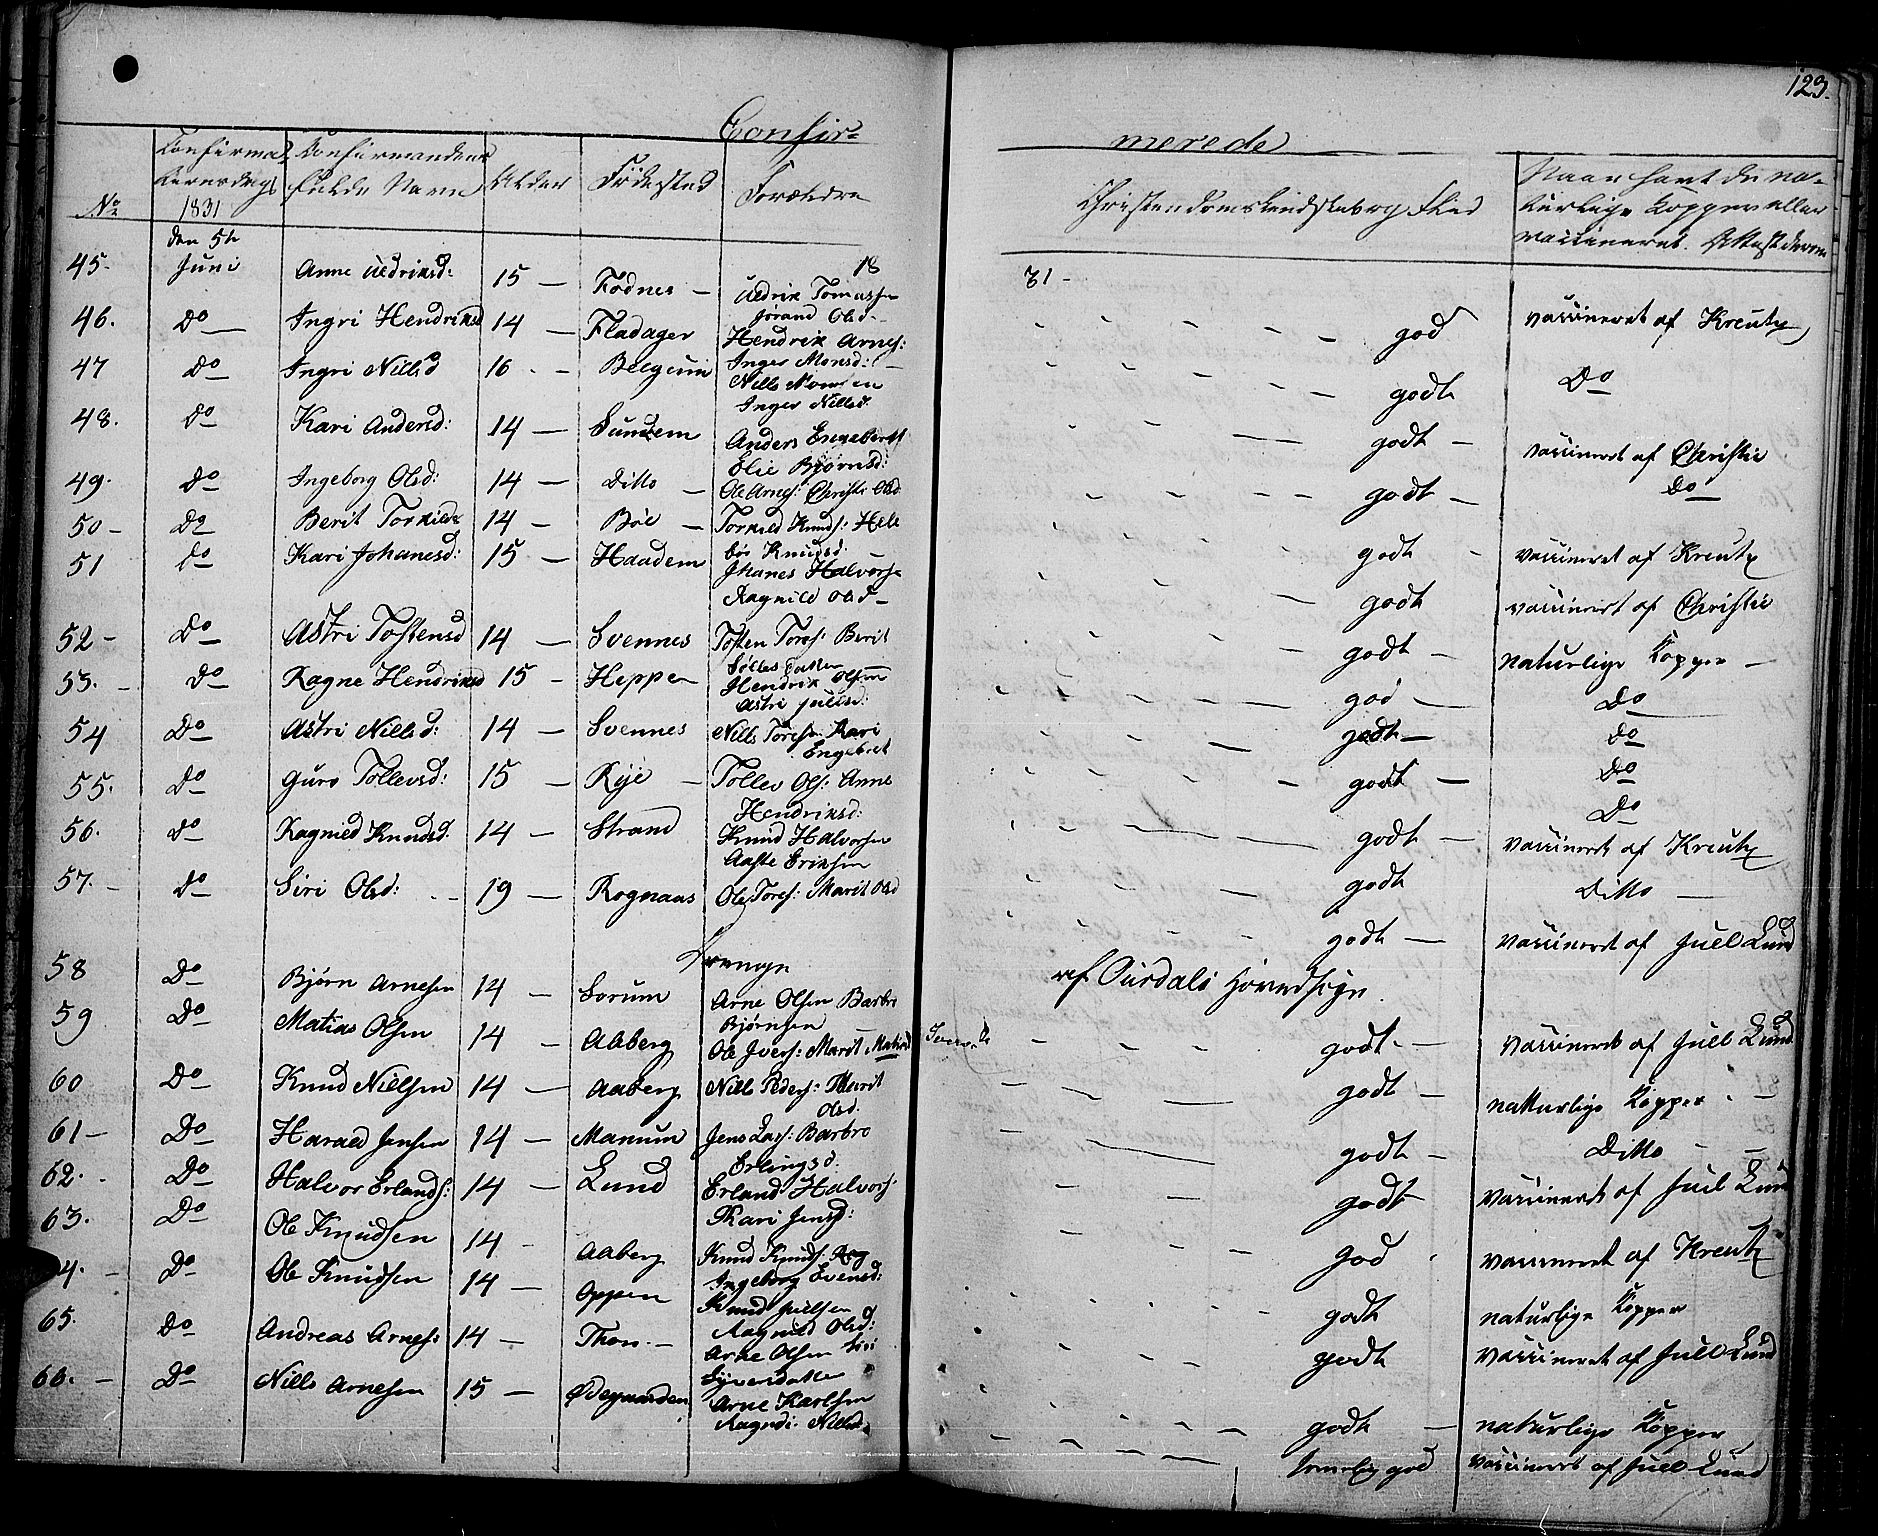 123.
Confir=
merede
No
Confirma
tionsdag
1831
Confirmandens
fulde Navn
Alder
Födested
Forældre
Christendomskundskab og Flid
Naar havt de na-
turlige Kopper eller
vaccineret. Attest derom
18
31 -
45. den 5te Juni Anne Uldriksd: 15 — Fodnes — Uldrik Tomassen Jörand Olsd. god vaccineret af Kreutz
46. Do Ingri Hendriksd 14 — Fladager Hendrik Arnes: Inger Monsd: godt Do
47 Do Ingri Nillsd 16 — Nills Monsen Inger Nillsd. godt — vaccineret af Christie
48. Do Kari Andersd: 14 — Sundem Anders Engebrets Elie Björnsd: godt — Do
49. Do Ingeborg Olsd: 14 — Ditto — Ole Arnes: Christi Olsd. godt - vaccineret af Kreutz
50 - Do Berit Torkilds 14 — Böe — Torkild Knuds: Hele bör Knudsd. godt vaccineret af Christie
51 Do Kari Johanesd: 15 — Haadem Johanes Halvors Ragnild Olsd — godt — naturlige Kopper —
52 - Do Astri Tostensd 14 — Svennes Tosten Tores: Berit Datter god — Do
53. - Do Ragne Hendriksd 15 - Heppen Hendrik Olsen Astri Juulsd: godt — Do
54 Do Astri Nillsd: 14 — Svennes Nills Toresen Kari Engebret godt — Do
55. Do Guro Tollevsd: 15 — Rye — Tollev Ols: Anne Hendriksd: Do
56. Do Ragnild Knudsd. 14 — Strand Knud Halvorsen Aaste Eriksen godt — vaccineret af Kreutz
57. - Do Siri Olsd: 19 — Rognaas Ole Tores: Marit Olsd godt Ditto —
godt — vaccineret af Juell Lund
Drenge af Ourdals Hovedsogn.
58 Do Björn Arnesen 14 — Sorum Arne Olsen Barbro Björnsen godt. — vaccineret af Juell Lund
59 Do Matias Olsen 14 — Aaberg Ole Ivers: Marit godt — naturlige Kopper. —
60 Do Knud Nielsen 14 — Aaberg Nills Peders: Marit Olsd. godt — Ditto - —
61 — Do Harald Jensen 14 — Manum Jens Lars: Barbro Erlingsd. godt vaccineret af Juel Lund
62. - Do Halvor Erlands: 14 — Lund Erland Halvors: Kari Jensd: god . vaccineret af Kreutz
63. Do Ole Knudsen 14 - Aaberg Knud Knuds: Ingeborg Evensd: godt naturlige Kopper
4. — Do Ole Knudsen 14 — Oppen Knud Juelsen Ragnild Olsd: godt vaccineret af Juell Lund
65. Do Andreas Arnes: 14 — Thon. — Arne Olsen Siri Eyversdatter godt — naturlige Kopper
66. — Do Nills Arnesen 15 — Ødegaarden Arne Karlsen Ragndi: Nillsd. temelig god vaccineret af Juell Lund